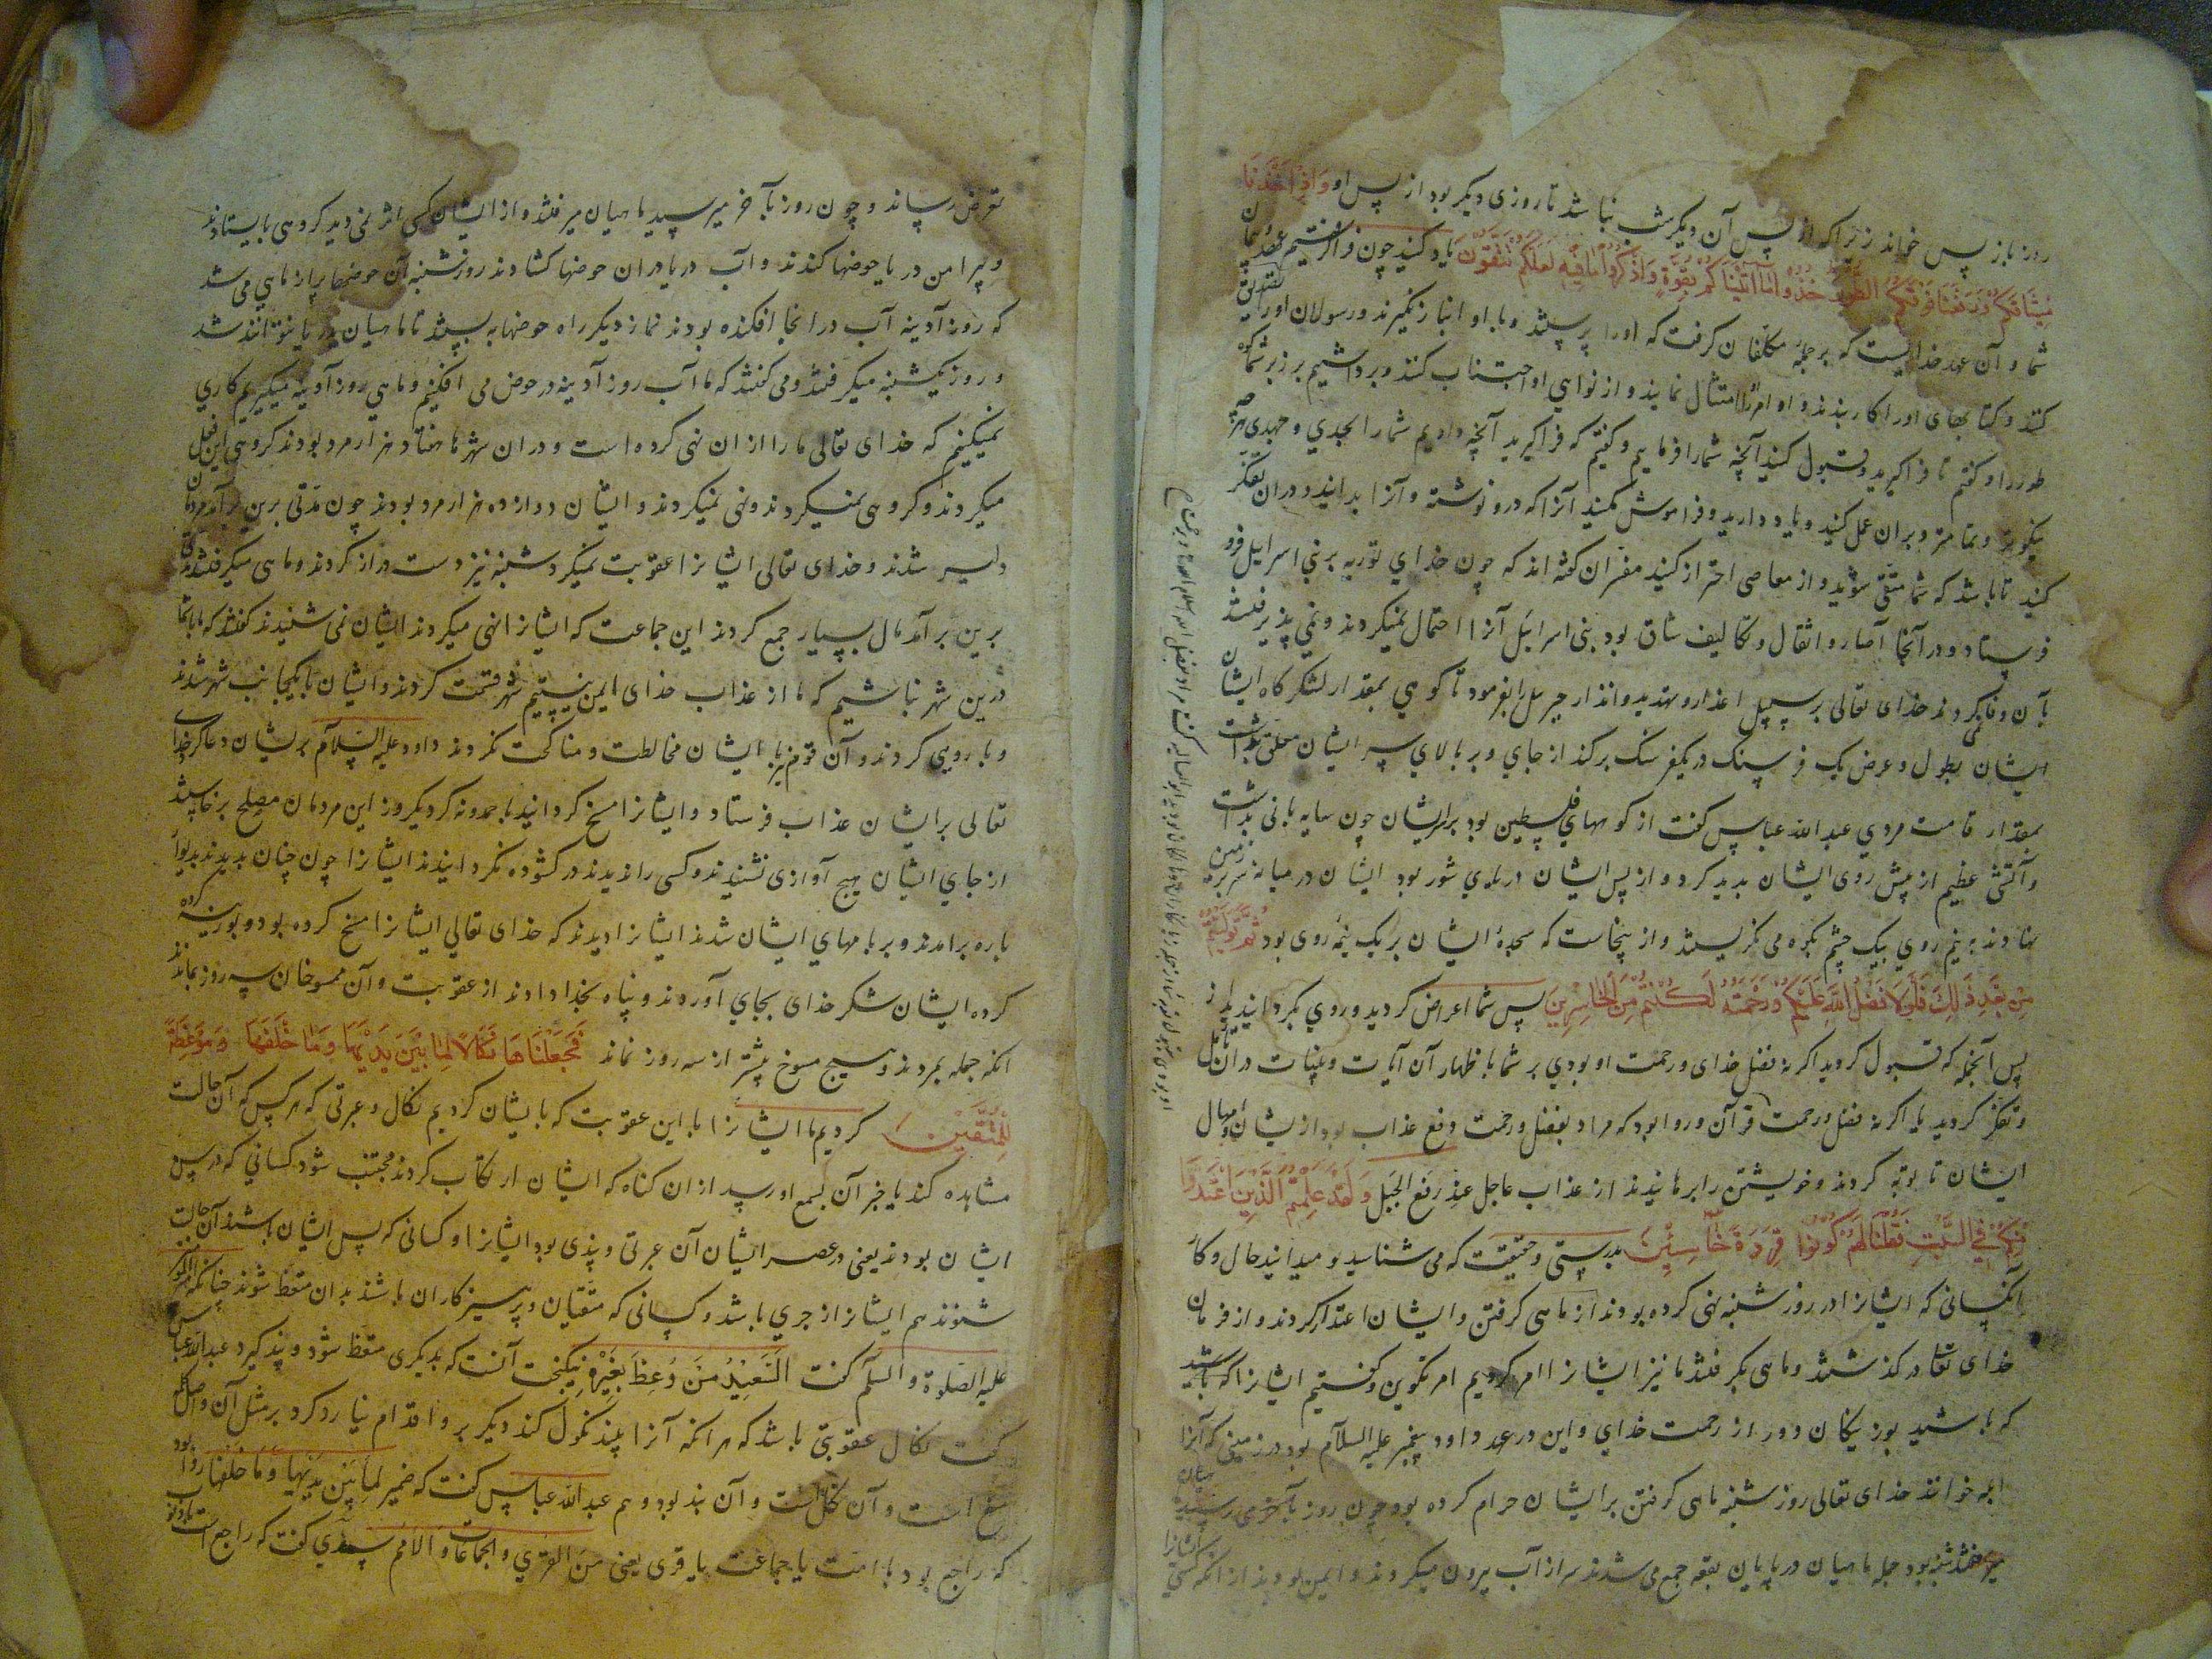 روز باز پس خماند زیرا که از پس آن دیگر شب نباشد تا روزی دیگر بود از پس او وَاِذْ اَخَذْنَا
مِیثَاقَکُمْ وَرَفَعْنَا فَوْقَکُمُ الطُّورَ خُذُوا مَا آتَیْنَاکُمْ بِقُوَّةٍ وَاذْکُرُوا مَا فِیهِ لَعَلَّکُمْ تَتَّقُونَ یاد کنید چون فرا گرفتیم عهد
شما و آن عهد خدایست که بر جمله مکلفان گرفت که اورا پرستند و با او انباز نگیرند و رسولان اورا تصدیق
کنند و کتابهای اورا کار بندند و اوامر را امتثال نمایند و از نواهی او اجتناب کنند و برداشتیم بر زبر شما کوه
طور را و گفتم تا فرا گیرید و قبول کنید آنچه شما را فرماییم و گفتیم که فرا گیرید آنچه دادیم شما را بجدی و جهدی هرچه
نیکوتر و تمامتر و بران عمل کنید و یاد دارید و فراموش مکنید آنرا که درو نوشته و آنرا بدانید و دران تفکر
کنید تا باشد که شما متقی شوید و از معاصی احتراز کنید مفسران گفته اند که چون خدای توریه بر بنی اسرایل فرو
فرستاد و در آنجا آصار و اثقال و تکالیف شاق بود بنی اسرائیل آنرا احتمال نمیکردند و نمی پذیرفتند
بآن وفا نمی کردند خدای تعالی بر سبیل اعذار و تهدید و انذار جبریل را بفرمود تا کوهی بمقدار لشکر گاه ایشان
ایشان بطول و عرض یک فرسنگ در یکفرسنگ برکند از جای و بر بالای سر ایشان معلق بداشت
بمقدار قامت مردی عبد الله عباس گفت از کوههای فلسطین بود بر سر ایشان چون سایه بانی بداشت
و آتشی عظیم از پیش روی ایشان بدید کرد و از پس ایشان دریای شور بود ایشان در میانه سر بر زمین
نهادند به نیم روی بیک چشم بکوه می نگریستند و از ینجاست که سجدهٔ ایشان بر یک نیمه روی بود ثُمَّ تَوَلَّیْتُمْ
مِنْ بَعْدِ ذَلِکَ فَلَوْلَا فَضْلُ اللَّهِ عَلَیْکُمْ وَرَحْمَتُهُ لَکُنْتُمْ مِنَ الْخَاسِرِینَ پس شما اعراض کردید و روی بگردانیدید از
پس آنجمله که قبول کردید اگر نه فضل خدای و رحمت او بودی بر شما باظهار آن آیات و بینات دران تامل
و تفکر کردید یا اگر نه فضل و رحمت قرآن و روا بود که مراد بفضل و رحمت دفع عذاب بود از یشان و امهال
ایشان تا توبه کردند و خویشتن را برهانیدند از عذاب عاجل عند رفع الجبل وَلَقَدْ عَلِمْتُمُ الَّذِینَ اعْتَدَوْا
مِنْکُمْ فِی السَّبْتِ فَقُلْنَا لَهُمْ کُونُوا قِرَدَةً خَاسِئِینَ بدرستی و حقیقت که می شناسید و میدانید حال و کار
آنکسانی که ایشانرا در روز شنبه نهی کرده بودند از ماهی گرفتن و ایشان اعتدا کردند و از فرمان
خدای تعا در گذشتند و ماهی بگرفتند ما نیز ایشانرا امر کردیم امر تکوین و گفتیم ایشانرا که باشید
که باشید بوزینکان دور از رحمت خدای و این در عهد داود پیغمبر علیه السلام بود در زمینی که آنرا
ایله خوانند خدای تعالی روز شنبه ماهی گرفتن بر ایشان حرام کرده بود چون روز بآخر می رسید
میرفتند شنبه بود جمله ماهیان دریا باین بقعه جمع می شدند سر از آب بیرون میکردند و ایمن بودند از انکه کسی ایشانرا
تعرض رساند و چون روز بآخر میرسید ماهیان میرفتند و از ایشان کسی اثر نمی دید گروهی بایستادند
و پیرامن دریا حوضها کندند و آب دریا دران حوضها گشادند روز شنبه آن حوضها پر از ماهی می شد
که روز آدینه آب در آنجا افکنده بودند نماز دیگر راه حوضها به بستند تا ماهیان بدریا نتوانند شد
و روز یکشنبه میگرفتند و می گفتند که ما آب روز آدینه در حوض می افکنیم و ماهی روز آدینه میگیریم کاری
نمیکنیم که خدای تعالی ما را از ان نهی کرده است و دران شهرها هفتاد هزار مرد بودند گروهی این فعل
میکردند و گروهی نمیکردند و نهی نمیکردند و ایشان دوازده هزار مرد بودند چون مدتی برین برآمد مردمان
دلیر شدند و خدای تعالی ایشانرا عقوبت نمیکرد شنبه نیز دست دراز کردند و ماهی میگرفتند
برین برآمد مال بسیار جمع کردند این جماعت که ایشانرا نهی میکردند ایشان نمی شنیدند گفتند که ما با شما
درین شهر نباشیم که ما از عذاب خدای ایمن نیستیم شهر قسمت کردند و ایشان با یکجانب شهر شدند
و بارویی کردند و آن قوم نیز با ایشان مخالطت و مناکحت نکردند داود علیه السلام بر ایشان دعا کرد خدای
تعالی بر ایشان عذاب فرستاد و ایشانرا مسخ گردانید با حمدونه کردیک روز این مردمان مصلح برخاستند
از جای ایشان هیچ آوازی نشنیدند و کسی را ندیدند در گشوده نکردانیدند ایشانرا چون چنان بدیدند بدیوار
باره برآمدند و بر بامهای ایشان شدند ایشانرا دیدند که خدای تعالی ایشانرا مسخ کرده بود و بوزینه
کرده ایشان شکر خدای بجای آوردند و پناه بخدا دادند از عقوبت و آن ممسوخان سه روز بماندند
انکه جمله بمردند و هیچ مسوخ بیشتر از سه روز نماند فَجَعَلْنَاهَا نَکَالًا لِمَا بَیْنَ یَدَیْهَا وَمَا خَلْفَهَا وَمَوْعِظَةً
لِلْمُتَّقِینَ کردیم ما ایشانرا با این عقوبت که بایشان کردیم نکال و عبرتی که هر کس که آن حالت
مشاهده کند یا خبر آن بسمع او رسد از ان گناه که ایشان ارتکاب کردند مجتنب شود کسانی که در پس
ایشان بودند یعنی در عصر ایشان آن عبرتی و پندی بود ایشانرا و کسانی که پس ایشان باشند و آن حالت
شنوند هم ایشانرا زجری باشد و کسانی که متقیان و پرهیزکاران باشند بدان متعظ شوند چنانکه
علیه الصلوة و السلم گفت اَلسَّعِیدُ مَنْ وُعِظَ بِغَیْرِهِ نیکبخت آنست که بدیگری متعظ شود و پند گیرد عبد الله عباس
گفت نکال عقوبتی باشد که هر انکه آنرا بیند نکول کند دیگر برو اقدام نیارد کرد بر مثل آن و اصل کلمه
منع است و آن نکل است و آن بند بود و هم عبد الله عباس گفت که ضمیر لِمَا بَیْنَ یَدَیْهَا وَمَا خَلْفَهَا روا بود
که راجع بود با امت یا جماعت یا قری یعنی مِنَ القری و الجماعات و الامم سدی گفت که راجع است